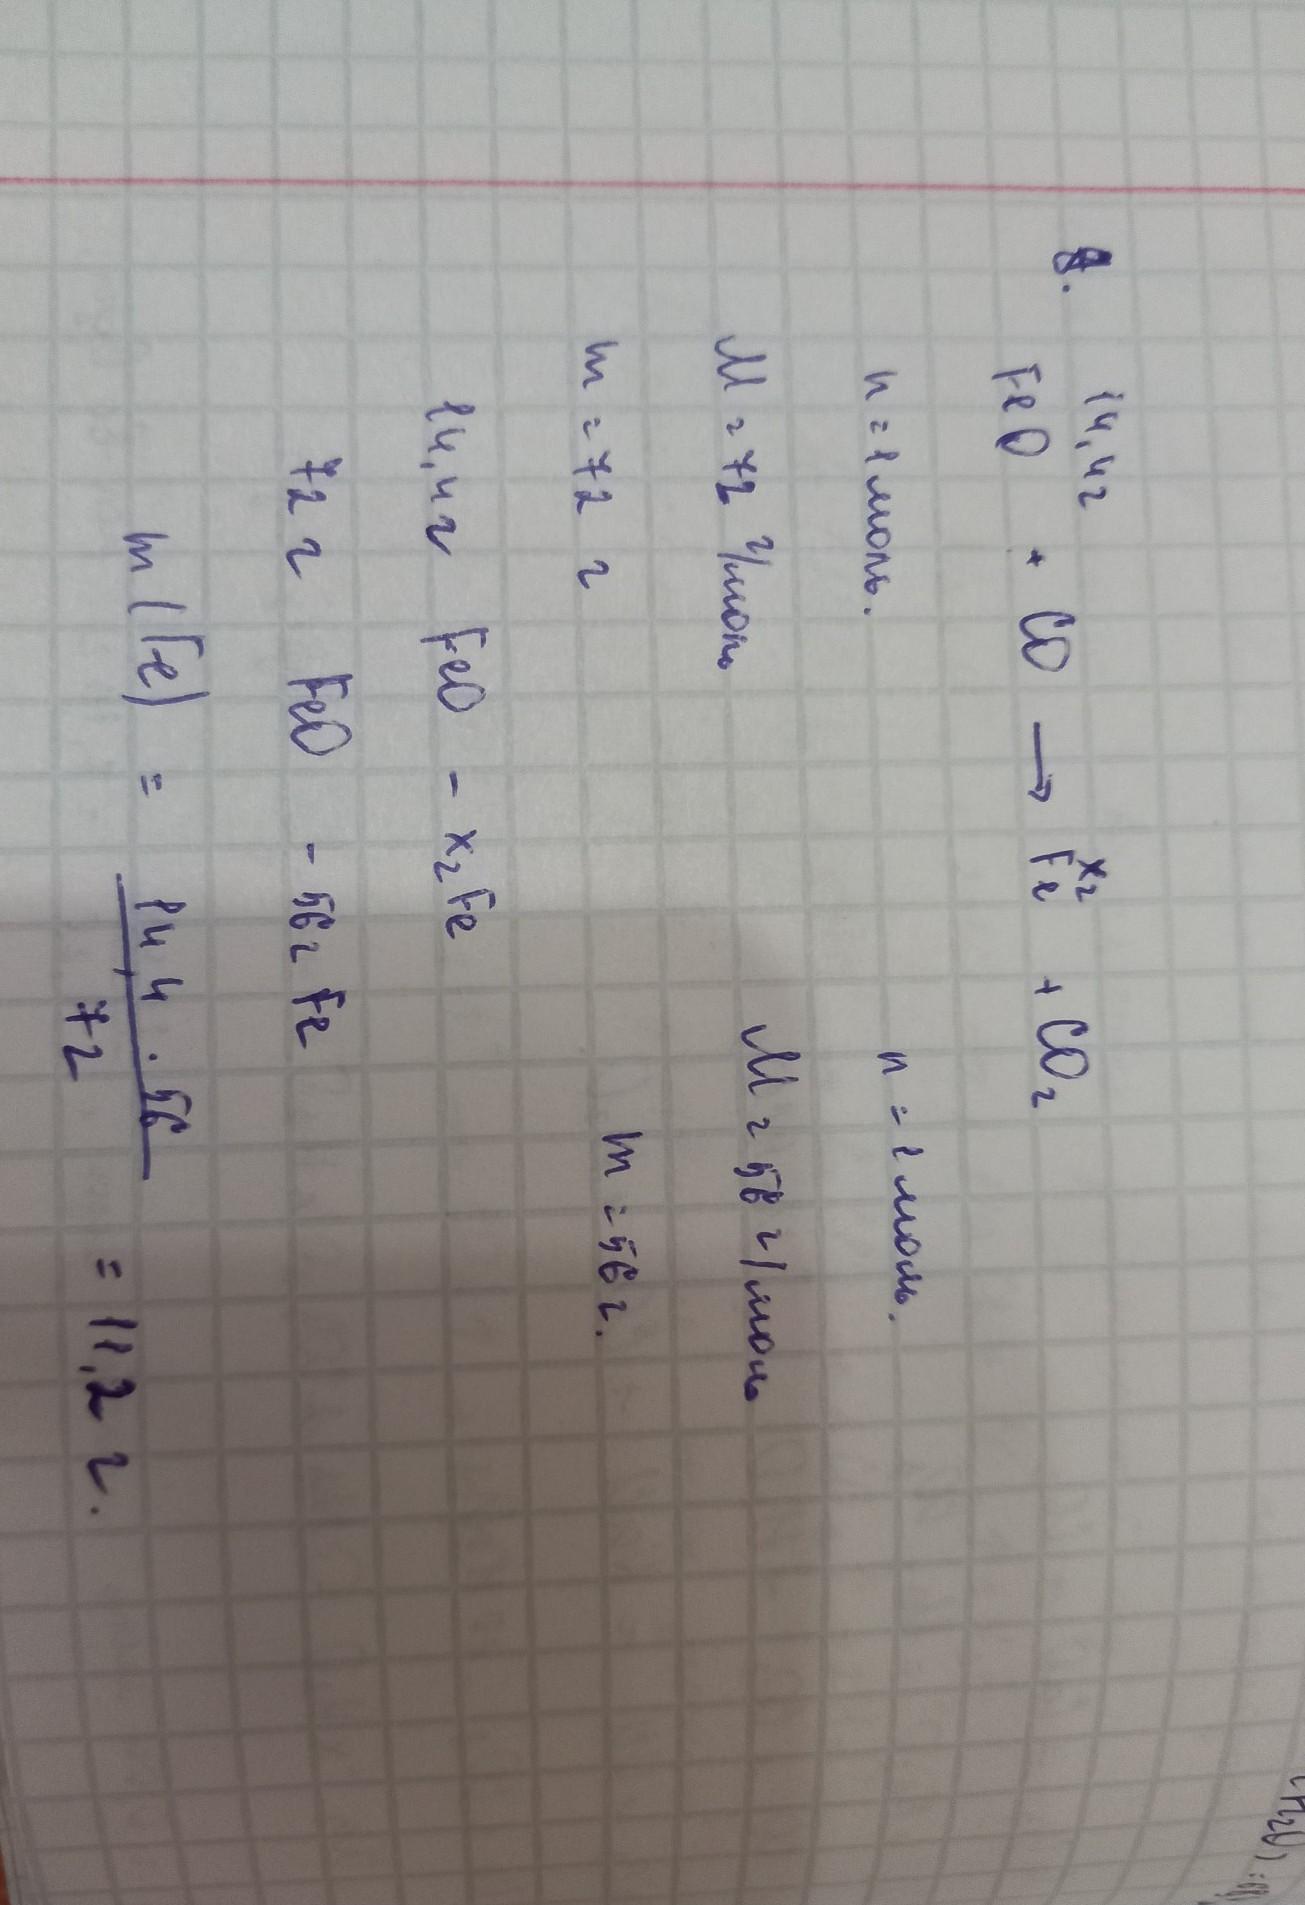 8. 14,4г xг
FeO + CO → Fe + CO₂
n = 1 моль. n = 1 моль.
M = 72 г/моль M = 56 г/моль
m = 72 г m = 56 г.
14,4 г FeO - xг Fe
72 г FeO - 56 г Fe
m (Fe) = 14,4 · 56 / 72 = 11,2 г.